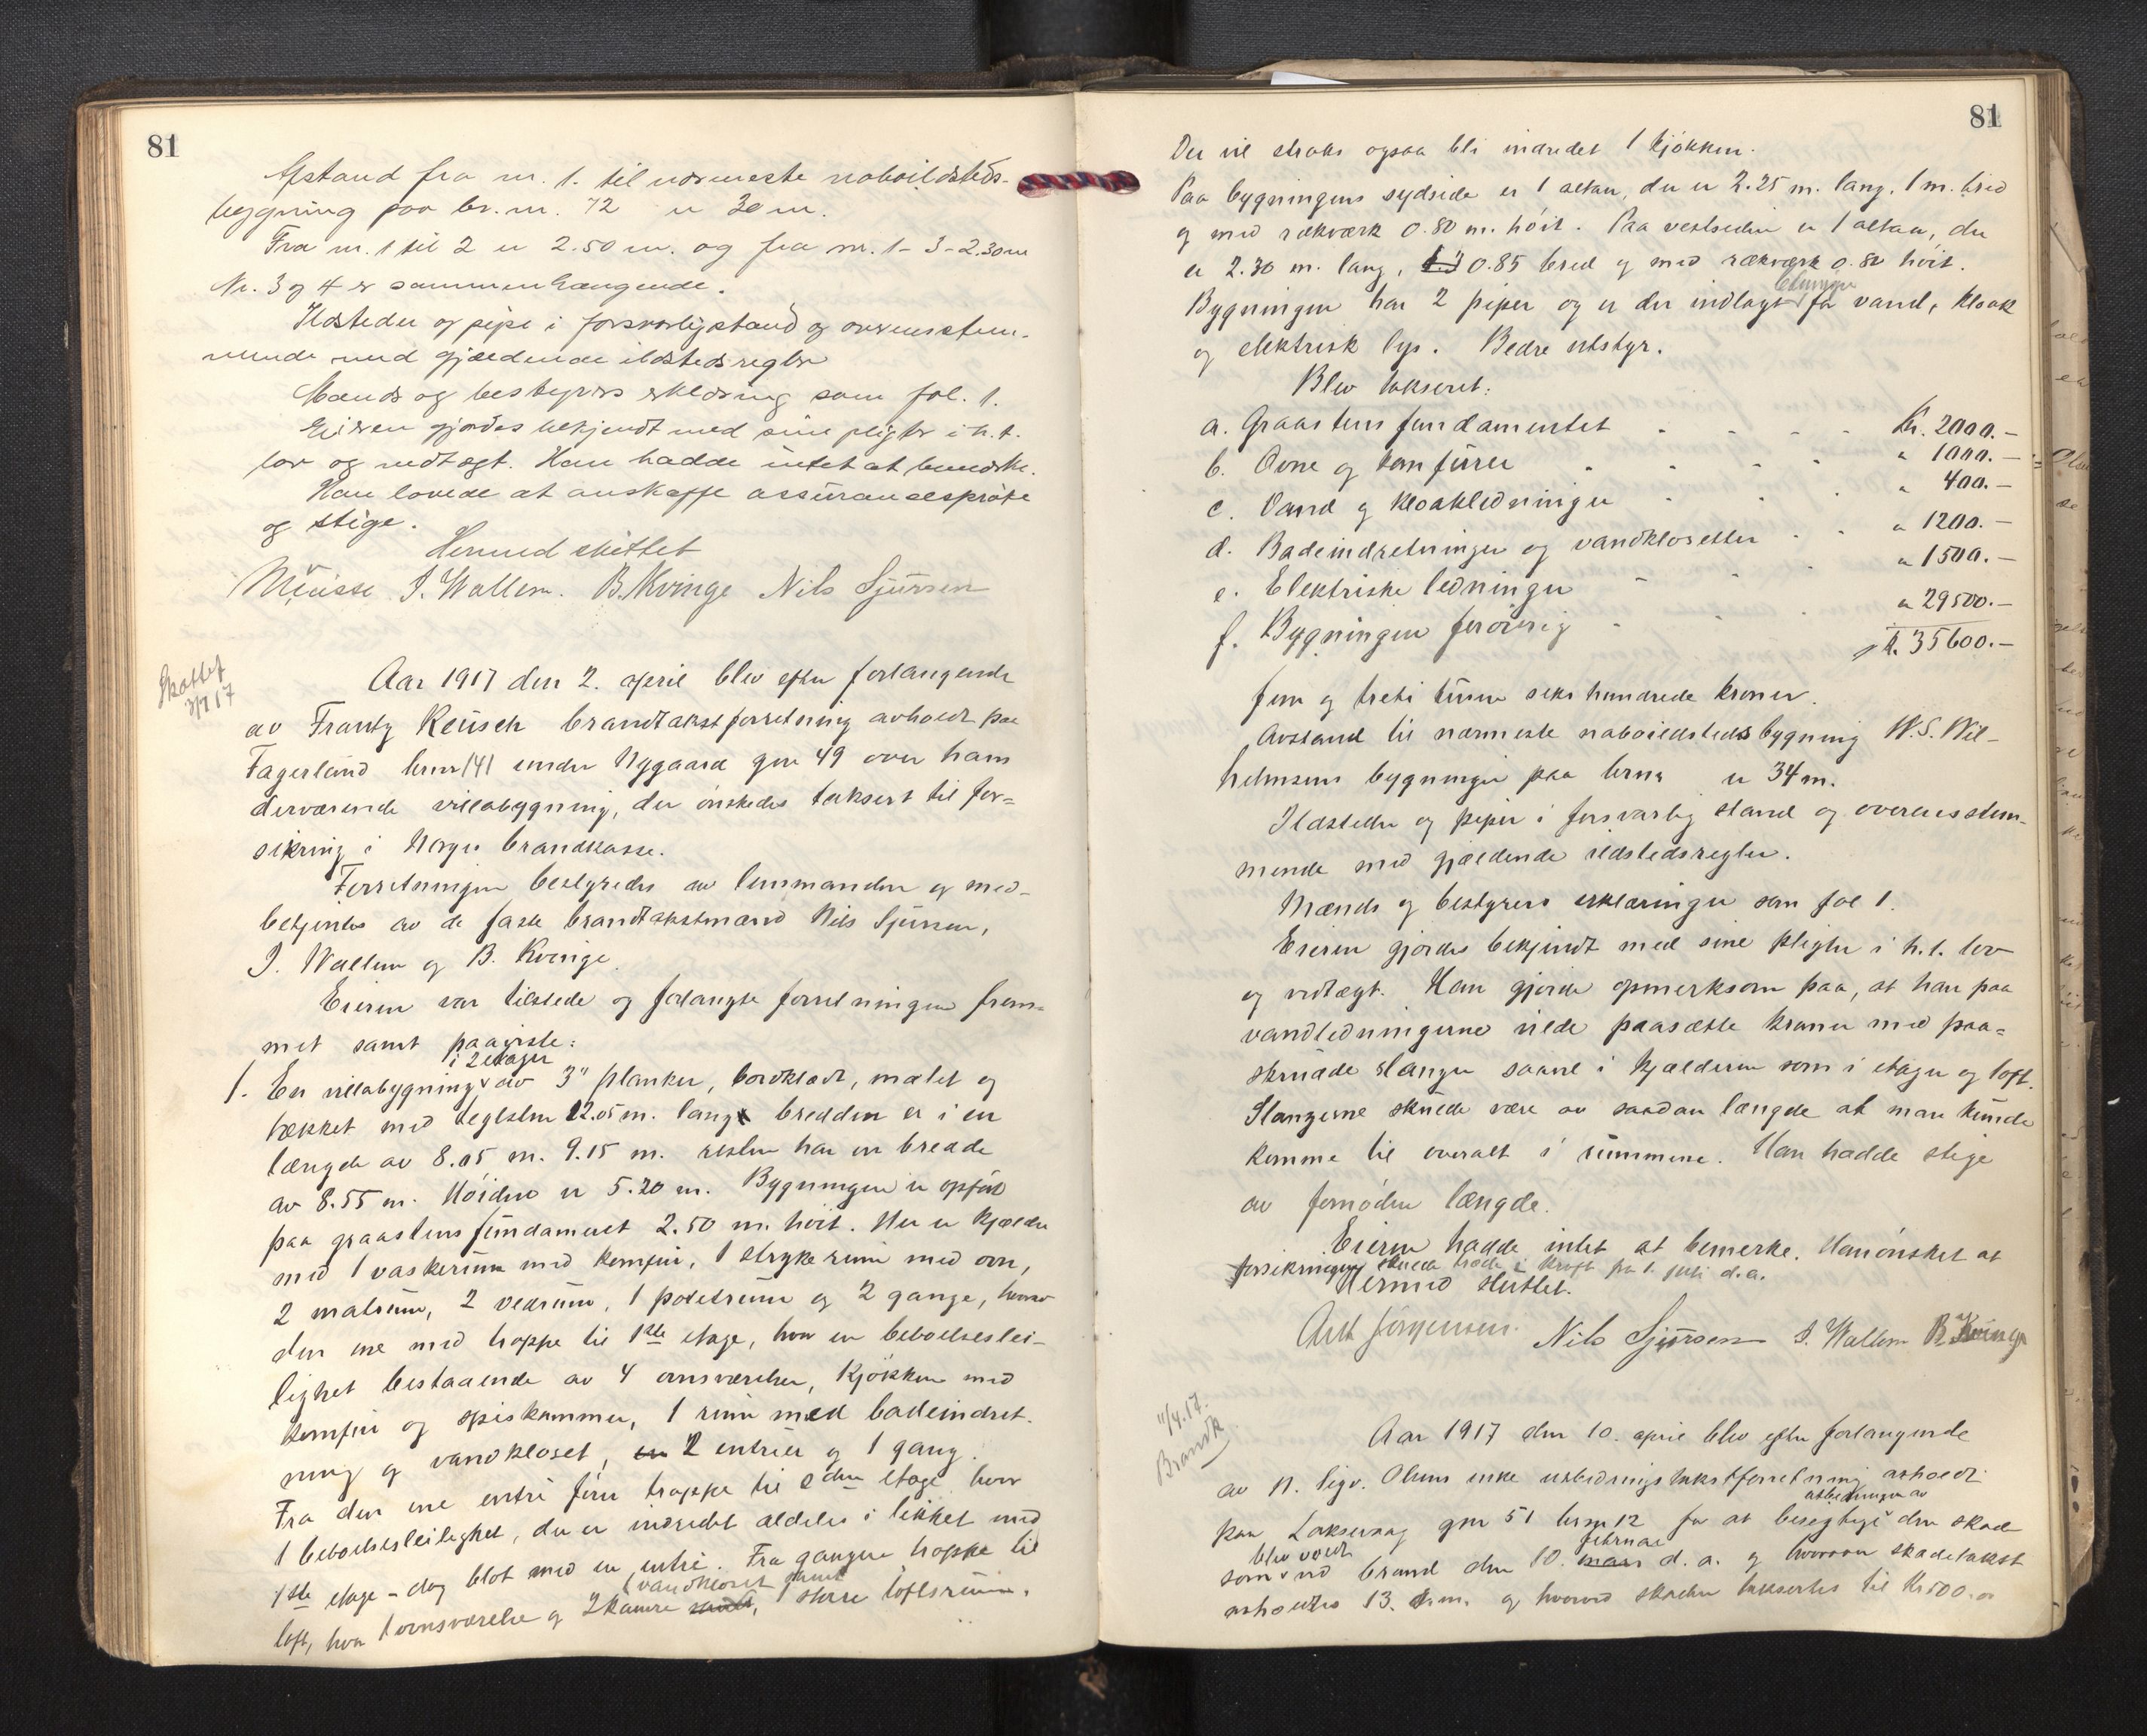 81
Afstand fra nr. 1. til nærmeste naboildsteds-
bygning paa br.nr. 72 er 30 m.
Fra nr. 1 til 2 er 2.50 m. og fra nr. 1 - 3 - 2.30 m
Nr. 3 og 4 er sammenhængende.
Ildsteder og pipe i forsvarlig stand og overensstem-
mende med gjældende ildstedsregler
Mænds og bestyrers erklæring som fol. 1.
Eieren gjordes bekjendt med sine pligter i h. t.
lov og vedtægt. Han hadde intet at bemerke.
Han lovede at anskaffe assuransesprøite
og stige.
Hermed sluttet
J. Wallem. B. Kvinge Nils Sjursen
Aar 1917 den 2. april blev efter forlangende
av Frantz Reusch brandtakstforretning avholdt paa
Fagerlund brnr 141 under Nygaard gnr 49 over hans
derværende villabygning, der ønskedes taksert til for=
sikring i Norges brandkasse.
Forretningen bestyredes av lensmanden og med-
betjentes av de faste brandtakstmænd Nils Sjursen,
J. Wallem og B. Kvinge.
Eieren var tilstede og forlangte forretningen frem=
met samt paaviste:
i 2 etager
1. En villabygning av 3" planker, bordklædt, malet og
tækket med teglsten 12.05 m. lang bredden er i en
længde av 8.05 m. 9.15 m. resten har en bredde
av 8.55 m. Høiden er 5.20 m. Bygningen er opført
paa graastens fundament 2.50 m. høit. Her er kjælder
med 1 vaskerum med komfur, 1 strykerum med ovn,
2 matrum, 2 vedrum, 1 potetrum og 2 gange, hvorav
den ene med trappe til 1ste etage, hvor en beboelseslei-
lighet bestaaende av 4 ovnsværelser, kjøkken med
komfur og spiskammer, 1 rum med badeindret-
ning og vandkloset, 2 entrèer og 1 gang.
Fra den ene entrè fører trappe til 2den etage hvor
1 beboelsesleilighet, der er indredet aldeles i likhet med
1ste etage - dog blot med en entrè. Fra gangen trappe til
1 vandkloset samt
loft, hvor 1 ovnsværelse og 2 kamre 1 større loftsrum.
81
Der vil straks ogsaa bli indredet 1 kjøkken.
Paa bygningens sydside er 1 altan, der er 2.25 m. lang, 1 m. bred
og med rækværk 0.80 m. høit. Paa vestsiden er 1 altan, der
er 2.30 m. lang, 0.85 bred og med rækværk 0.80 høit.
Bygningen har 2 piper og er der indlagt for vand, kloak
og elektrisk lys. Bedre utstyr.
Blev takseret:
a. Graastensfundamentet Kr. 2000.-
b. Ovne og komfurer " 1000.-
c. Vand og kloakledninger " 400.-
d. Badeindretninger og vandklosetter " 1200.-
e. Elektriske ledninger " 1500.-
f. Bygningen forøvrig " 29500.-
Kr. 35600.-
fem og treti tusen seks hundrede kroner.
Avstand til nærmeste naboildstedsbygning W. S. Wil-
helmsens bygninger paa brnr er 34 m.
Ildsteder og piper i forsvarlig stand og overensstem-
mende med gjældende ildstedsregler.
Mænds og bestyrers erklæringer som fol 1.
Eieren gjordes bekjendt med sine pligter i h. t. lov
og vedtægt. Han gjorde opmerksom paa, at han paa
vandledningerne vilde paasætte kraner med paa=
skruede slanger saavel i kjælderen som i etager og loft.
Slangerne skulde være av saadan længde at man kunde
komme til overalt i rummene. Han hadde stige
av fornøden længde.
Eieren hadde intet at bemerke. Han ønsket at
forsikringen skulde træde i kraft fra 1. juli d.a.
Hermed sluttet.
Jørgensen. Nils Sjursen J. Wallem B. Kvinge
11/4.17.
Aar 1917 den 10. april blev efter forlangende
av N. Sigv. Olsens enke utbedringstakstforretning avholdt
utbedringen av
paa Laksevaag gnr 51 brnr 12 for at besigtige den skade
blev voldt februar
som ved brand den 10. mars d. a. og hvorover skadetakst
avholdtes 13. s.m. og hvorved skaden taksertes til Kr 500.00